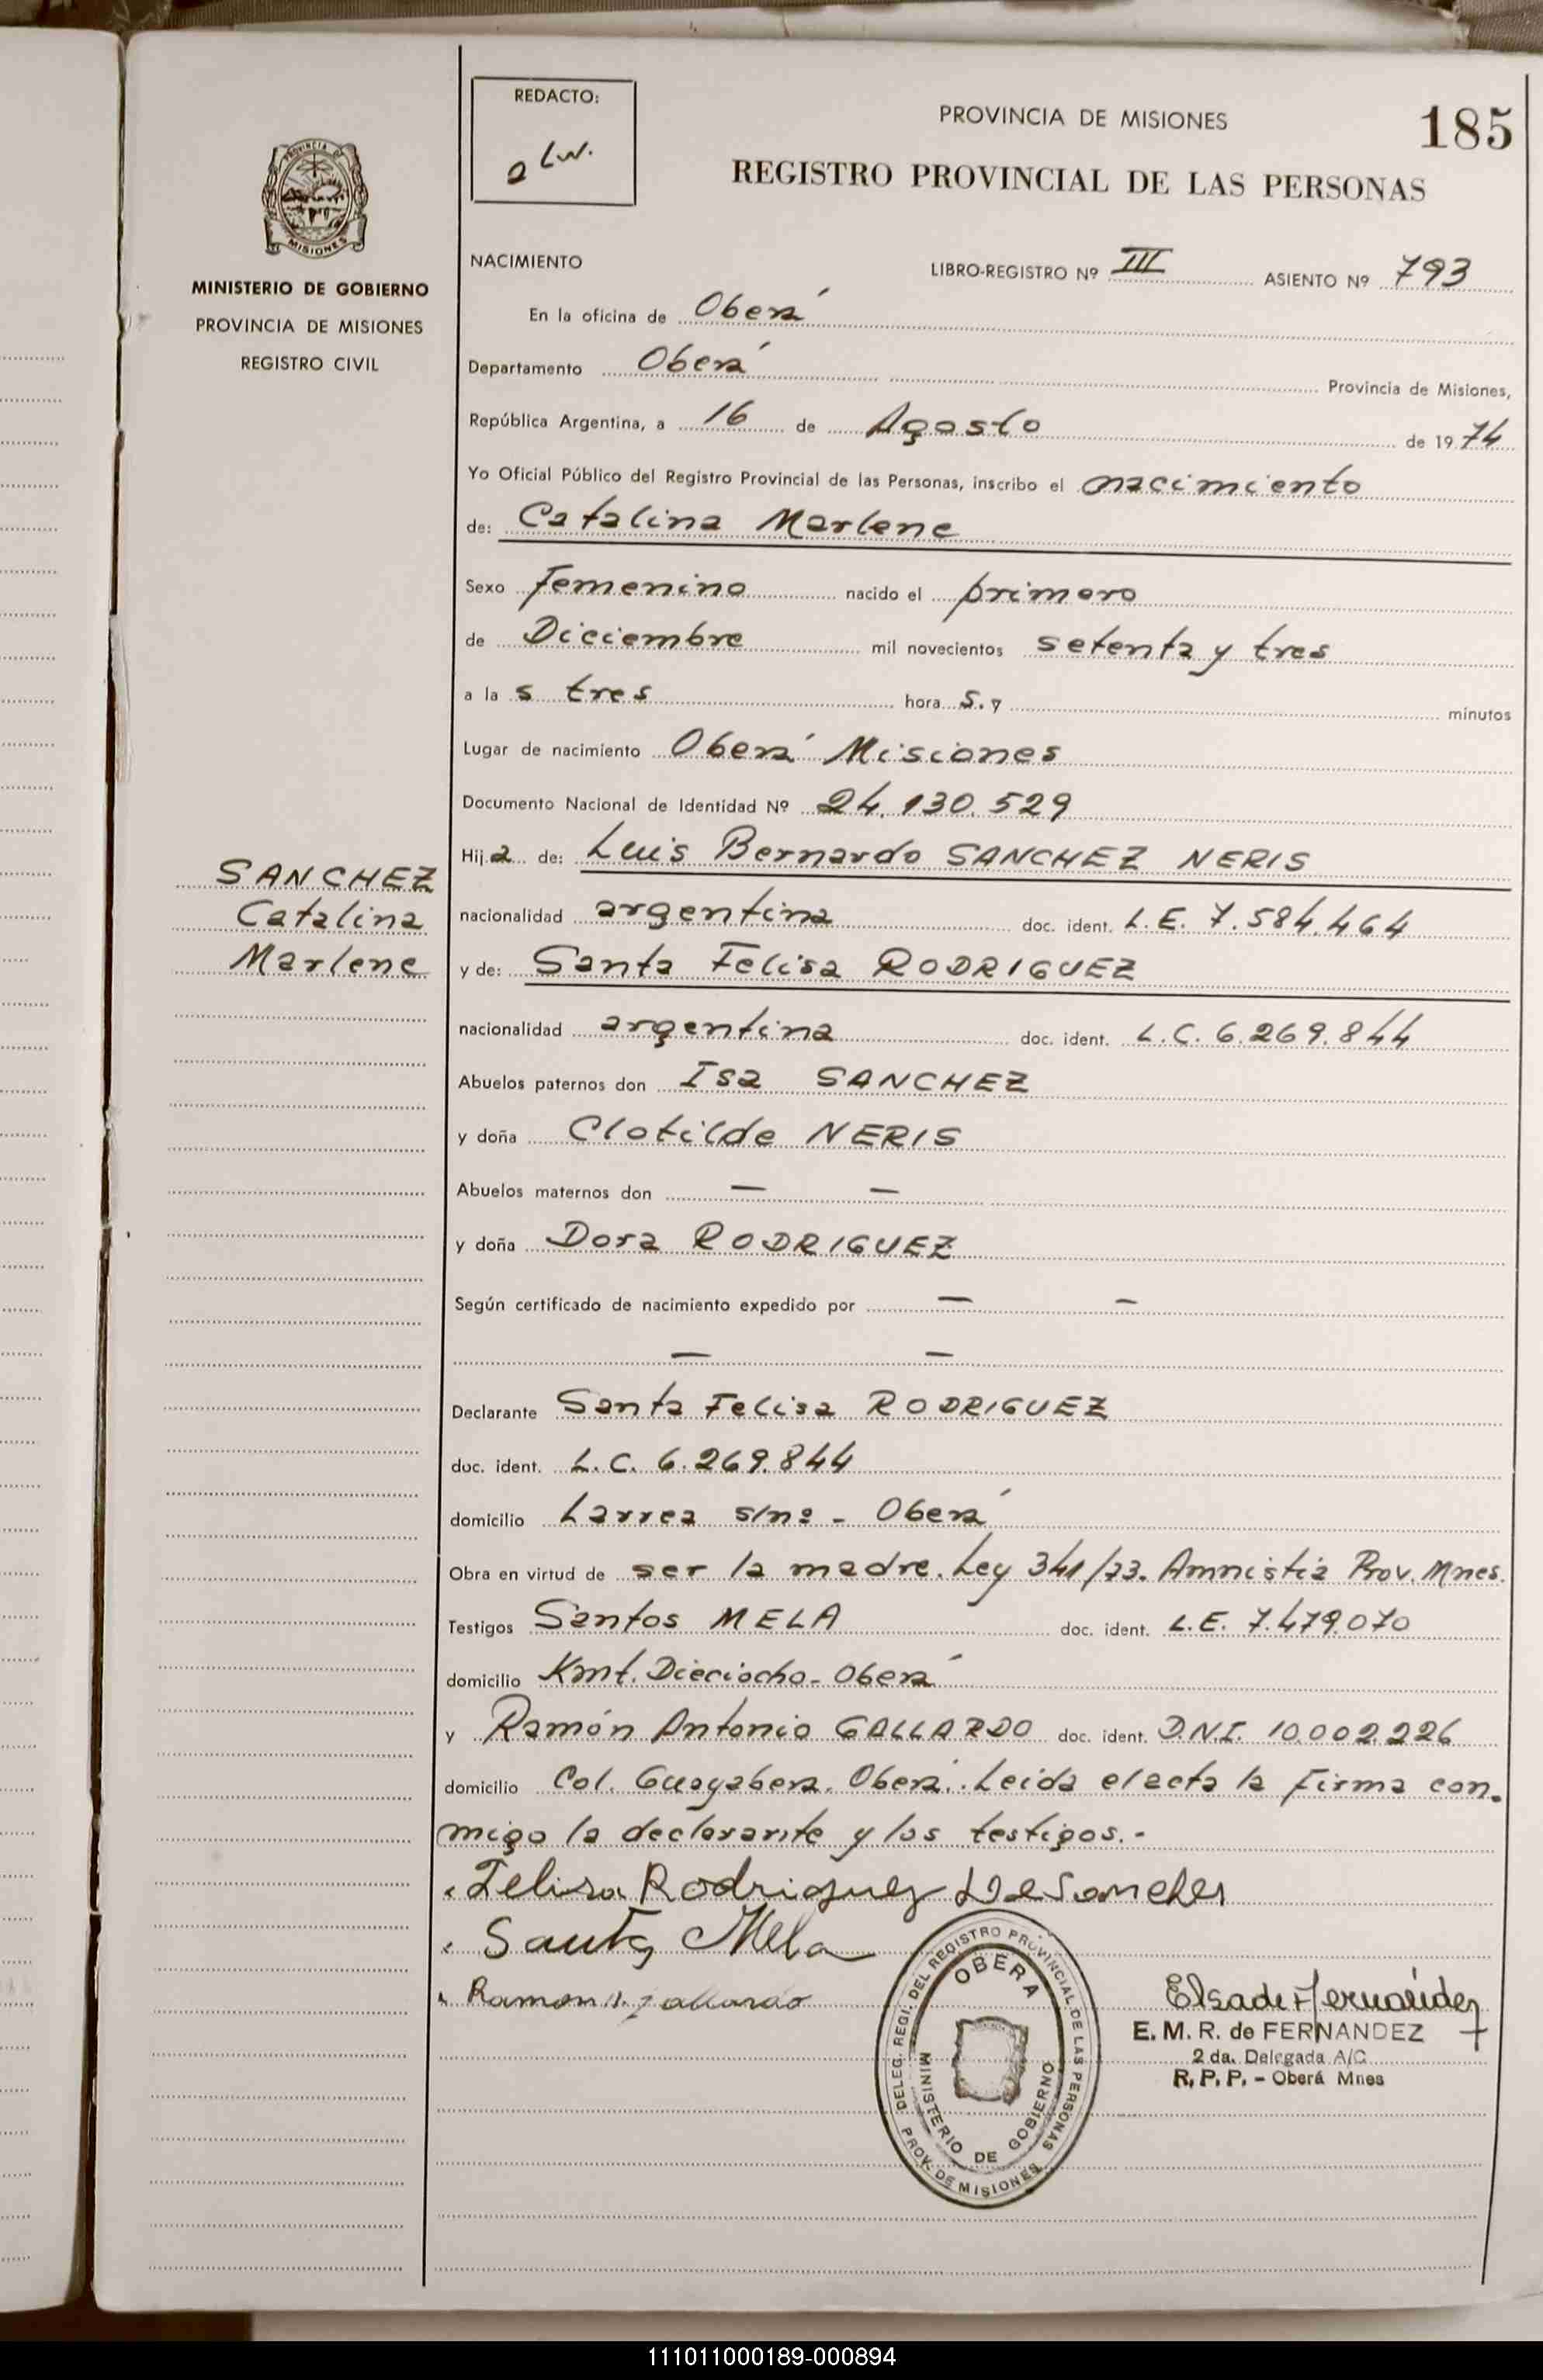 REDACTO:
PROVINCIA DE MISIONES
185
REGISTRO PROVINCIAL DE LAS PERSONAS
MISIONES
MINISTERIO DE GOBIERNO
PROVINCIA DE MISIONES
REGISTRO CIVIL
NACIMIENTO LIBRO-REGISTRO Nº III ASIENTO Nº 793
En la oficina de Oberá
Departamento Oberá Provincia de Misiones,
República Argentina, a 16 de Agosto de 1974
Yo Oficial Público del Registro Provincial de las Personas, inscribo el nacimiento
de: Catalina Marlene
Sexo Femenino nacido el primero
de Diciembre mil novecientos setenta y tres
a la s tres hora s. y minutos
Lugar de nacimiento Oberá Misiones
Documento Nacional de Identidad Nº 24.130.529
Hija de: Luis Bernardo SANCHEZ NERIS
SANCHEZ
Catalina
Marlene
nacionalidad argentina doc. ident. L.E. 7.584.464
y de: Santa Felisa RODRIGUEZ
nacionalidad argentina doc. ident. L.C. 6.269.844
Abuelos paternos don Isa SANCHEZ
y doña Clotilde NERIS
Abuelos maternos don — —
y doña Dora RODRIGUEZ
Según certificado de nacimiento expedido por — —
— —
Declarante Santa Felisa RODRIGUEZ
doc. ident. L.C. 6.269.844
domicilio Larrea s/nº - Oberá
Obra en virtud de ser la madre. Ley 341/73. Amnistia Prov. Mnes.
Testigos Santos MELA doc. ident. L.E. 7.479.070
domicilio Kmt. Dieciocho - Oberá
y Ramón Antonio GALLARDO doc. ident. D.N.I. 10.002.226
domicilio Col. Guayabera. Oberá. Leida el acta la firma con-
migo la declarante y los testigos.-
Felisa Rodriguez De Sanches
Santos Mela
Ramon A. Gallardo
DELEG. REGI. DEL REGISTRO PROVINCIAL DE LAS PERSONAS
OBERA
MINISTERIO DE GOBIERNO
PROV. DE MISIONES
Elsa de Fernández
E. M. R. de FERNANDEZ
2 da. Delegada A/C
R. P. P. - Oberá Mnes
111011000189-000894